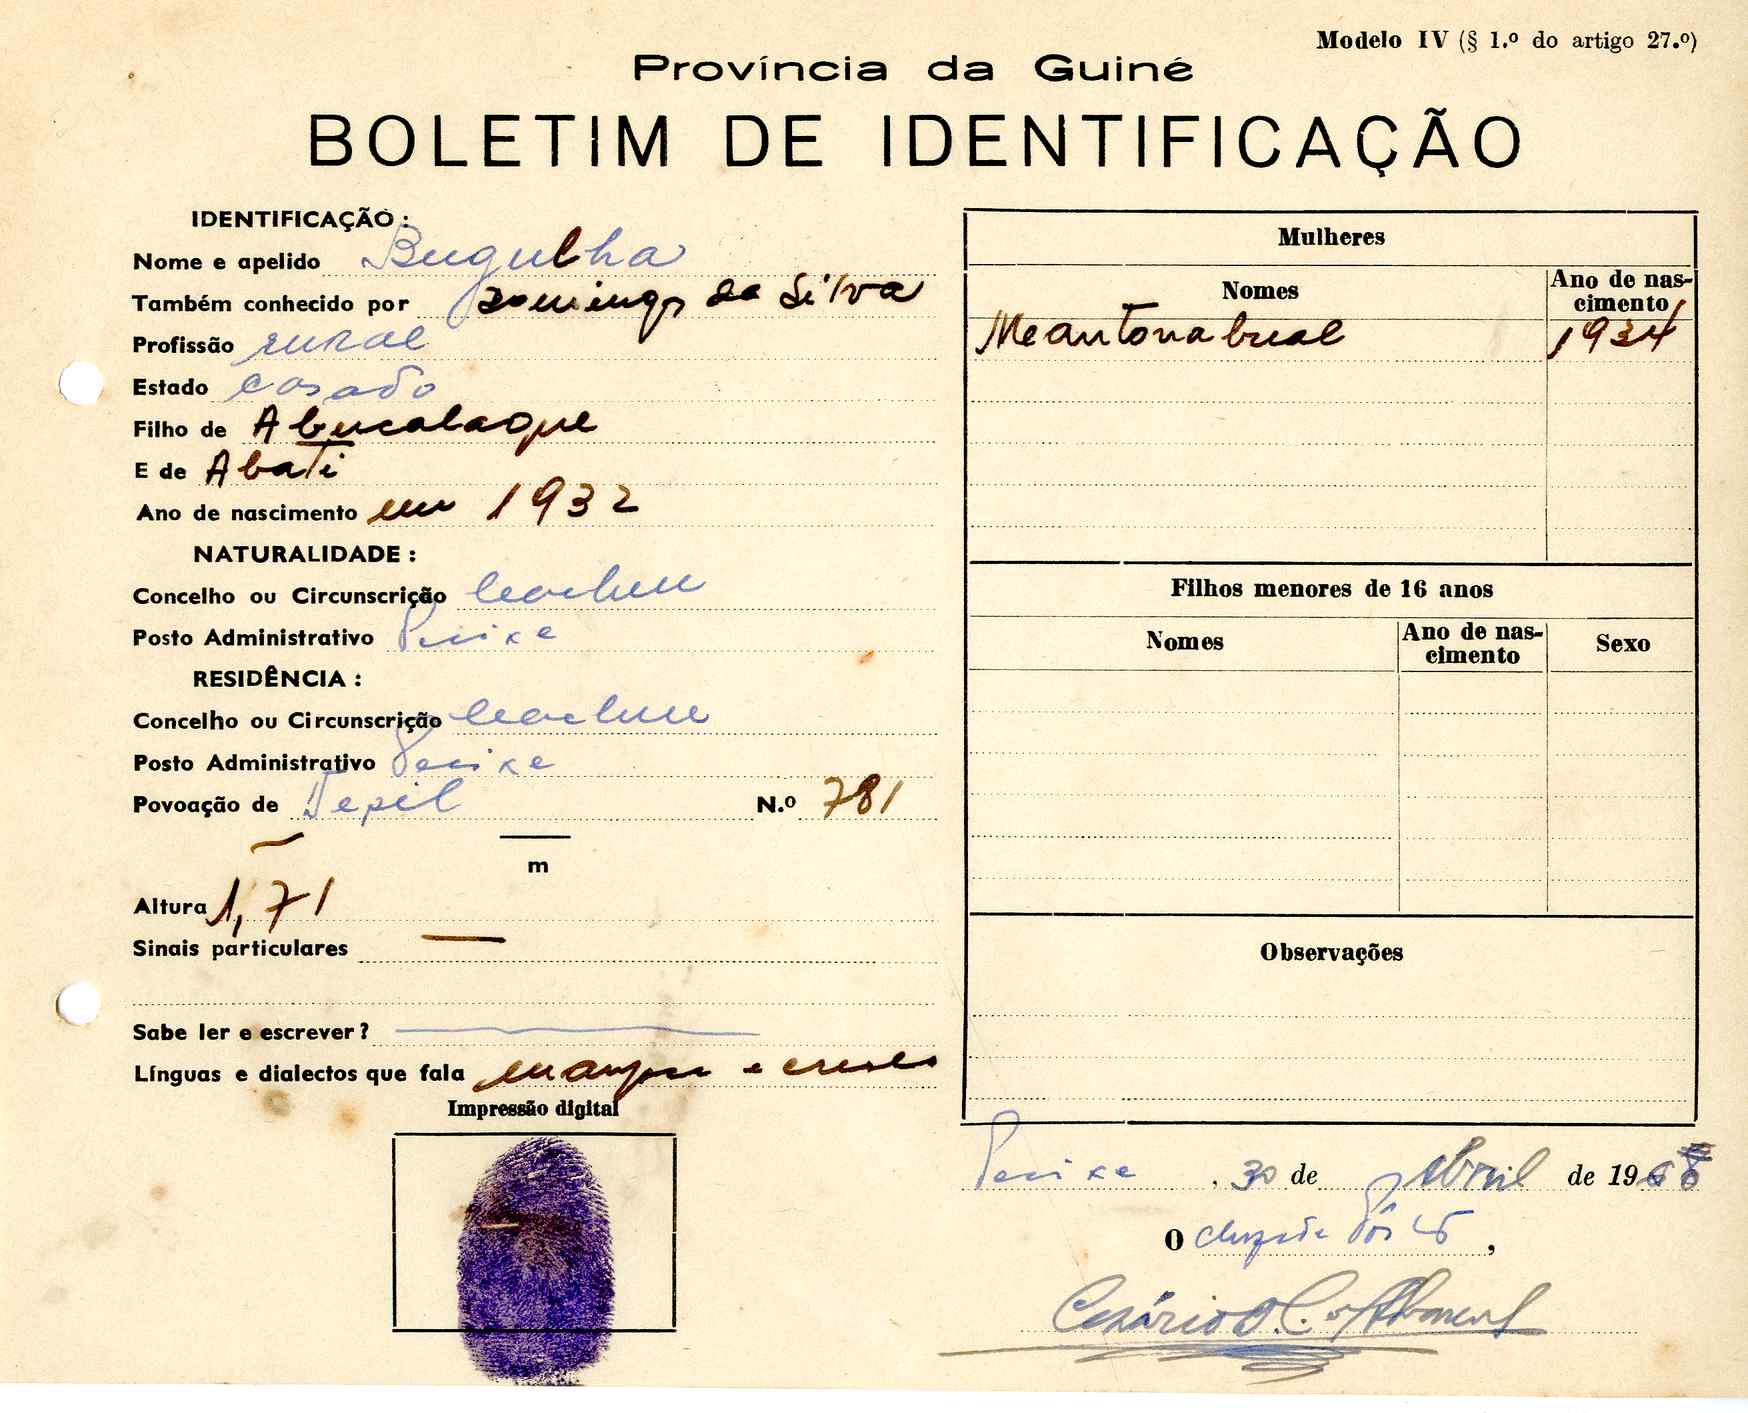 Modelo IV (§ 1.º do artigo 27.º)
Província da Guiné
BOLETIM DE IDENTIFICAÇÃO
IDENTIFICAÇÃO:
Nome e apelido Bugulha
Também conhecido por Domingos da Silva
Profissão rural
Estado casado
Filho de Abucalaque
E de Abati
Ano de nascimento em 1932
NATURALIDADE:
Concelho ou Circunscrição Cacheu
Posto Administrativo Pecixe
RESIDÊNCIA:
Concelho ou Circunscrição Cacheu
Posto Administrativo Pecixe
Povoação de N.º 781
m
Altura 1,71
Sinais particulares —
Sabe ler e escrever?
Línguas e dialectos que fala e
Impressão digital
Mulheres
Nomes
Ano de nas-
cimento
1934
Filhos menores de 16 anos
Nomes
Ano de nas-
cimento
Sexo
Observações
Pecixe, 30 de Abril de 1968
O
Cesário